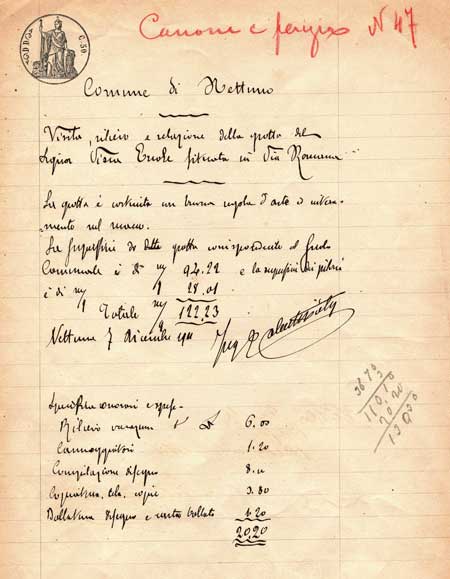 C. 50
Canone e perizia N 47
Comune di Nettuno
Visita, rilievo e relazione della grotta del
Signor Ercole situata in Via Romana
La grotta è costruita un buona regola d'arte e
mento nel masso.
La superficie di detta grotta corrispondente al suolo
Comunale è di mq 94.22 e la superficie dei pilieri
è di mq 28.01
Totale mq 122.23
Nettuno 7 dicembre 1911
Ing
3670
110,10
20.20
130,30
Specifica onorari e spese
Rilievo £ 6.00
1.20
Compilazione disegno 8.00
tela, copie 3.80
Bollatura disegno e carta bollata 1.20
20,20